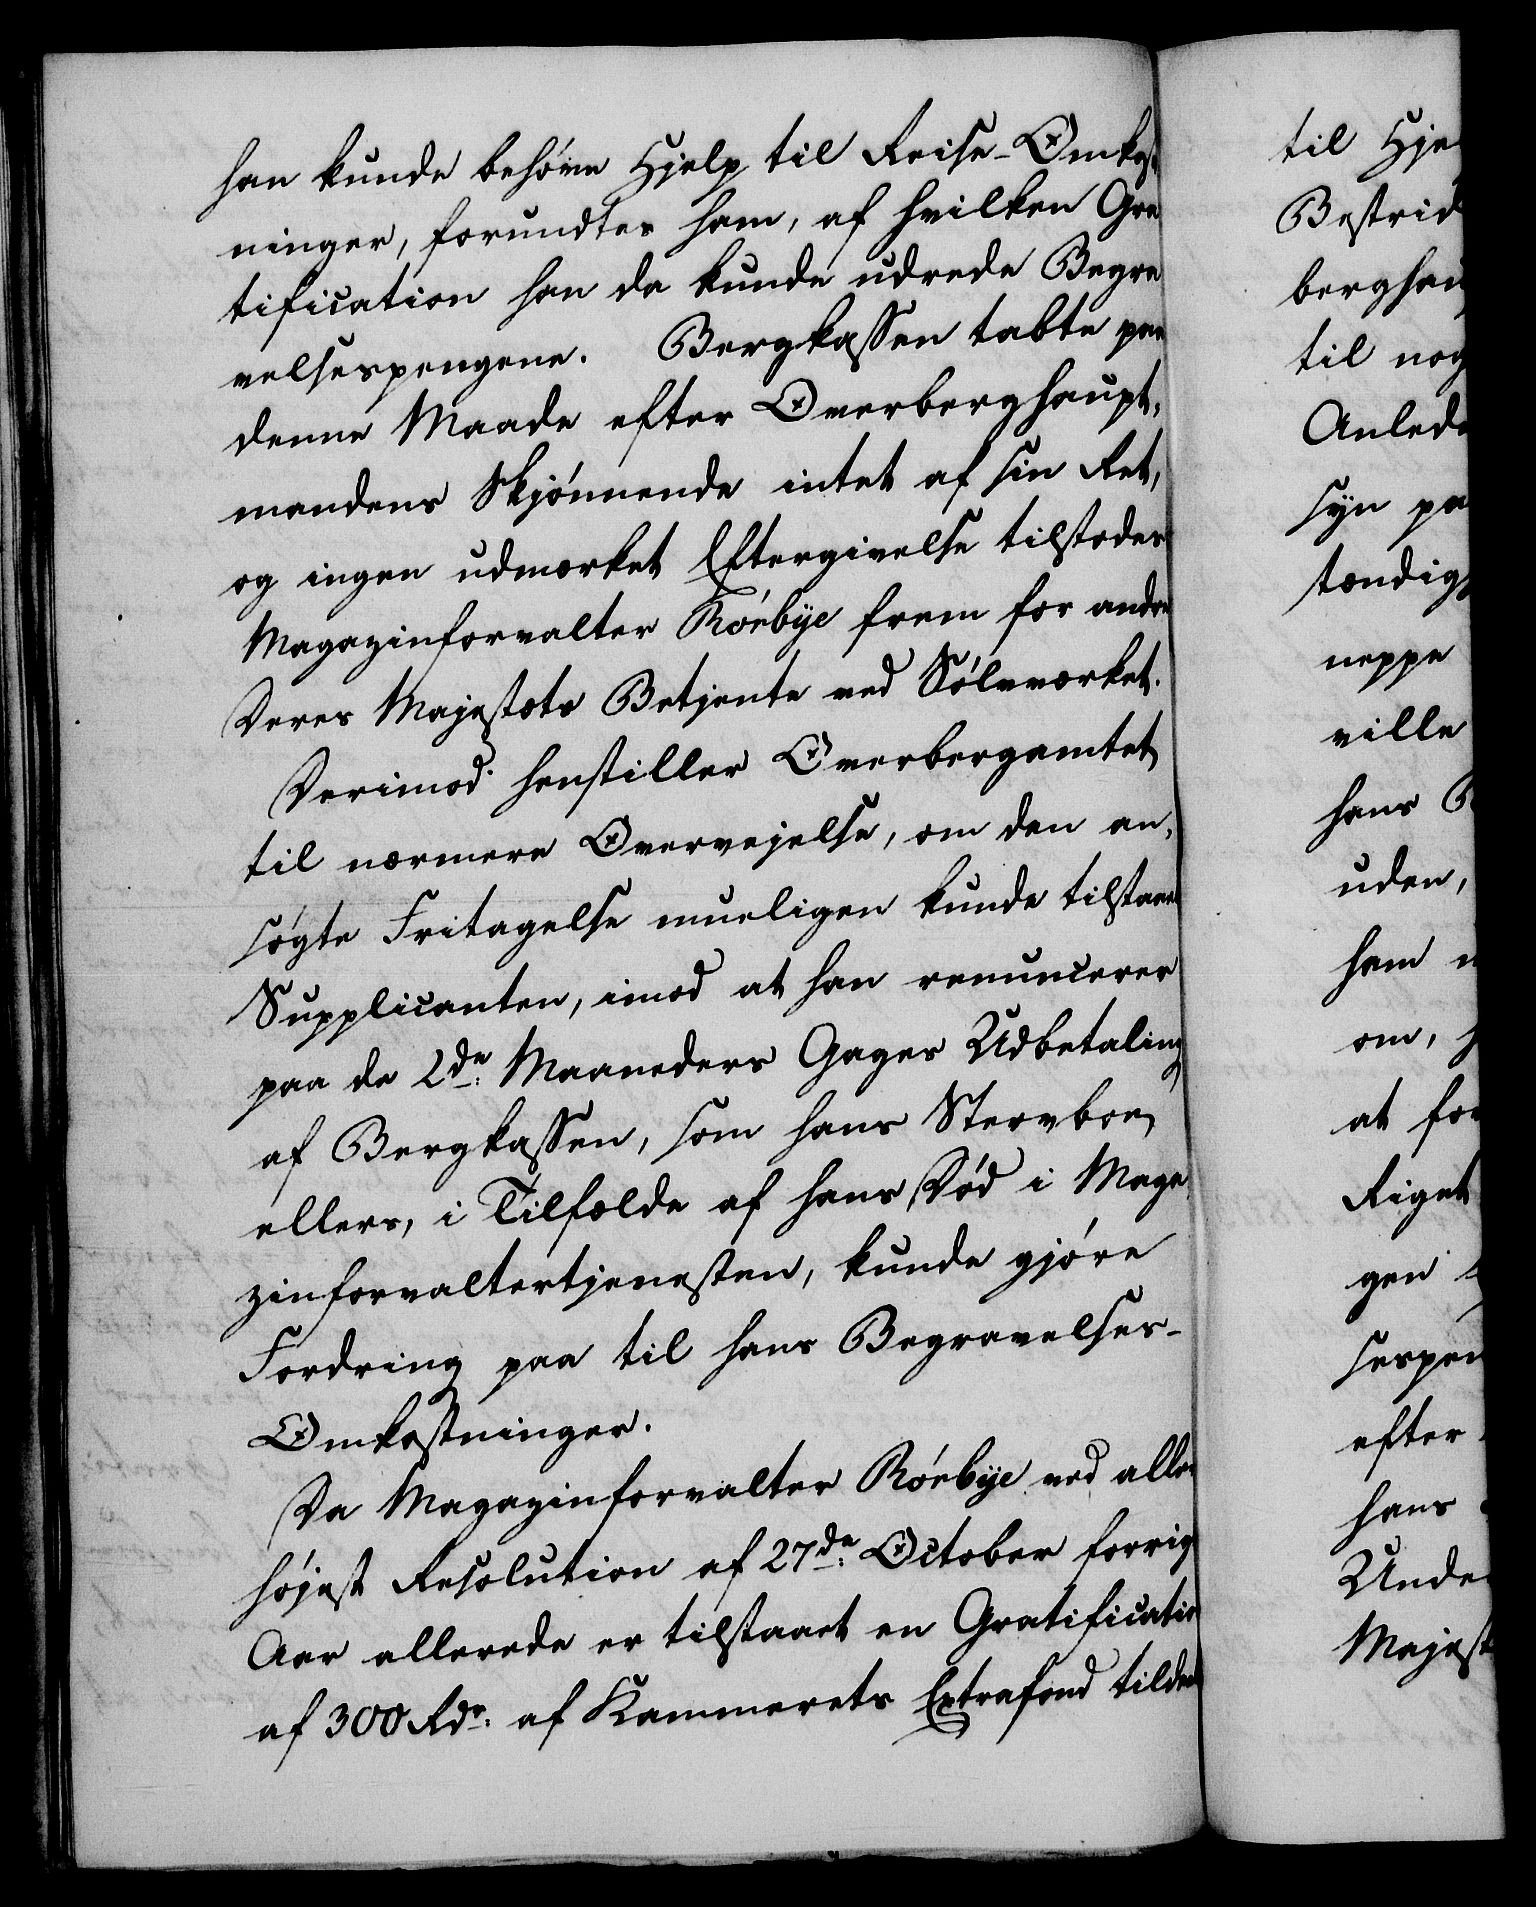 han kunde behøve Hjelp til Reise-Omkost-
ninger, forundtes ham, af hvilken Gra
tification han da kunde udrede Begra
velsespengene. Bergkassen tabte paa
denne Maade efter Overberghaupt,
mandens Skjønnende intet af sin Ret,
og ingen udmærket Eftergivelse tilstodes
Magazinforvalter Rörbÿe frem for andre
Deres Majestæts Betjente ved Sølvværket.
Derimod henstiller Overbergamtet
til nærmere Overvejelse, om den an,
søgte Fritagelse mueligen kunde tilstaaes
Supplicanten, imod at han renuncerer
paa de 2de: Maaneders Gages Udbetaling
af Bergkassen, som hans Stervboe,
ellers, i Tilfælde af hans Død i Maga
zinforvaltertjenesten, kunde gjøre
Fordring paa til hans Begravelses-
Omkostninger.
Da Magazinforvalter Rörbÿe ved aller
højest Resolution af 27de: October forrige
Aar allerede er tilstaaet en Gratification
af 300 Rdr: af Kammerets Extrafond tildeels
til Hje
Bestrid
berghau
til nog
Anled
syn pa
stændig
neppe
ville
hans B
uden,
ham
om,
at for
Riget
gen
sespen
efter
hans
Unde
Majest